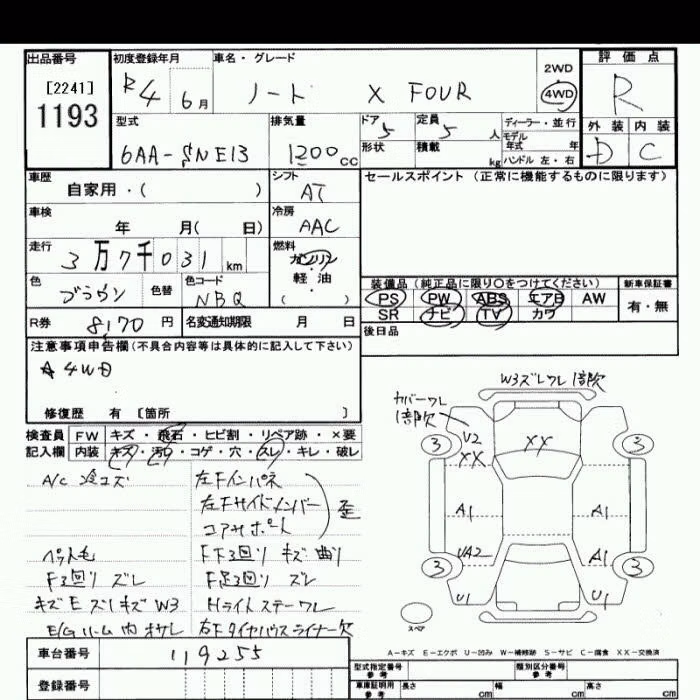 出品番号 初度登録年月 車名・グレード 評価点
[2241] R4 6月 ノート X FOUR 2WD 4WD R
1193 型式 排気量 ドア 定員 ディーラー・並行 外装 内装
6AA-SNE13 1200cc 5 5人 モデル年式 年 D C
形状 積載 kg ハンドル 左・右
車歴 自家用・( ) シフト AT セールスポイント (正常に機能するものに限ります)
車検 年 月( 日) 冷房 AAC
走行 3万7千031km 燃料 ガソリン 軽油 ( )
色 ブラウン 色替 色コード NBQ
装備品 (純正品に限り○をつけてください) 新車保証書
PS PW ABS エアB AW 有・無
SR ナビ TV カワ
R券 8,170円 名変通知期限 月 日 後日品
注意事項申告欄 (不具合内容等は具体的に記入して下さい)
4WD
修復歴 有 [箇所 ]
検査員 FW キズ・飛石・ヒビ割・リペア跡・×要
記入欄 内装 キズ・汚れ・コゲ・穴・スレ・キレ・破レ
A/C 冷エズ 左Fインパネ
左Fサイドメンバー 歪
コアサポート
ペット毛 F下3回リ キズ 曲リ
F3回リ ズレ F足3回リ ズレ
キズE ズレキズ W3 Hライトステーワレ
E/Gルーム内 オサレ 右Fタイヤハウスライナー欠
W3ズレワレ 1部欠
カバーワレ
1部欠
3 U2 XX XX 3
A1 A1
3 UA2 A1 3
U1 U1
スペア
A-キズ E-エクボ U-凹み W-補修跡 S-サビ C-腐食 XX-交換済
車台番号 119255 型式指定番号 参考 類別区分番号 参考
登録番号 車庫証明用 参考 長さ cm 幅 cm 高さ cm